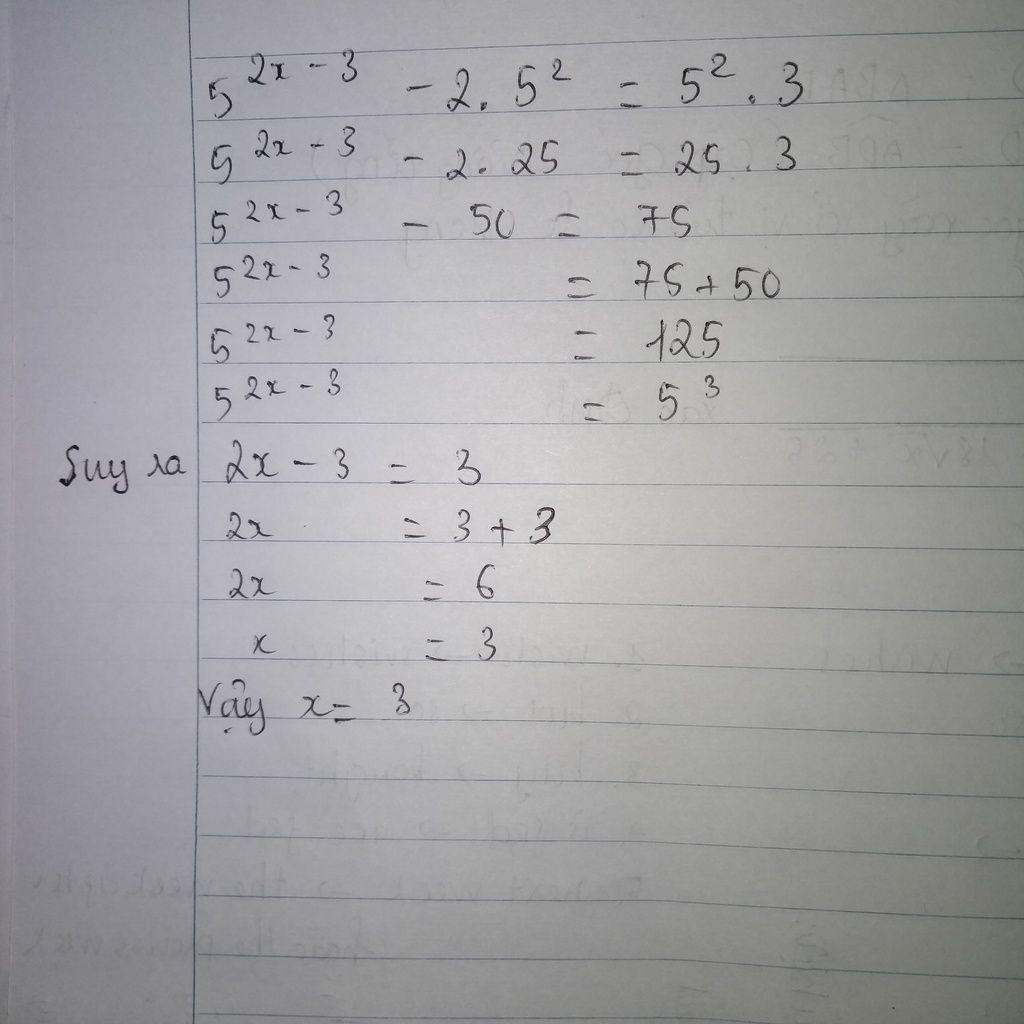 5^{2x-3} - 2.5² = 5².3
5^{2x-3} - 2.25 = 25.3
5^{2x-3} - 50 = 75
5^{2x-3} = 75+50
5^{2x-3} = 125
5^{2x-3} = 5³
Suy ra 2x-3 = 3
2x = 3+3
2x = 6
x = 3
Vậy x = 3